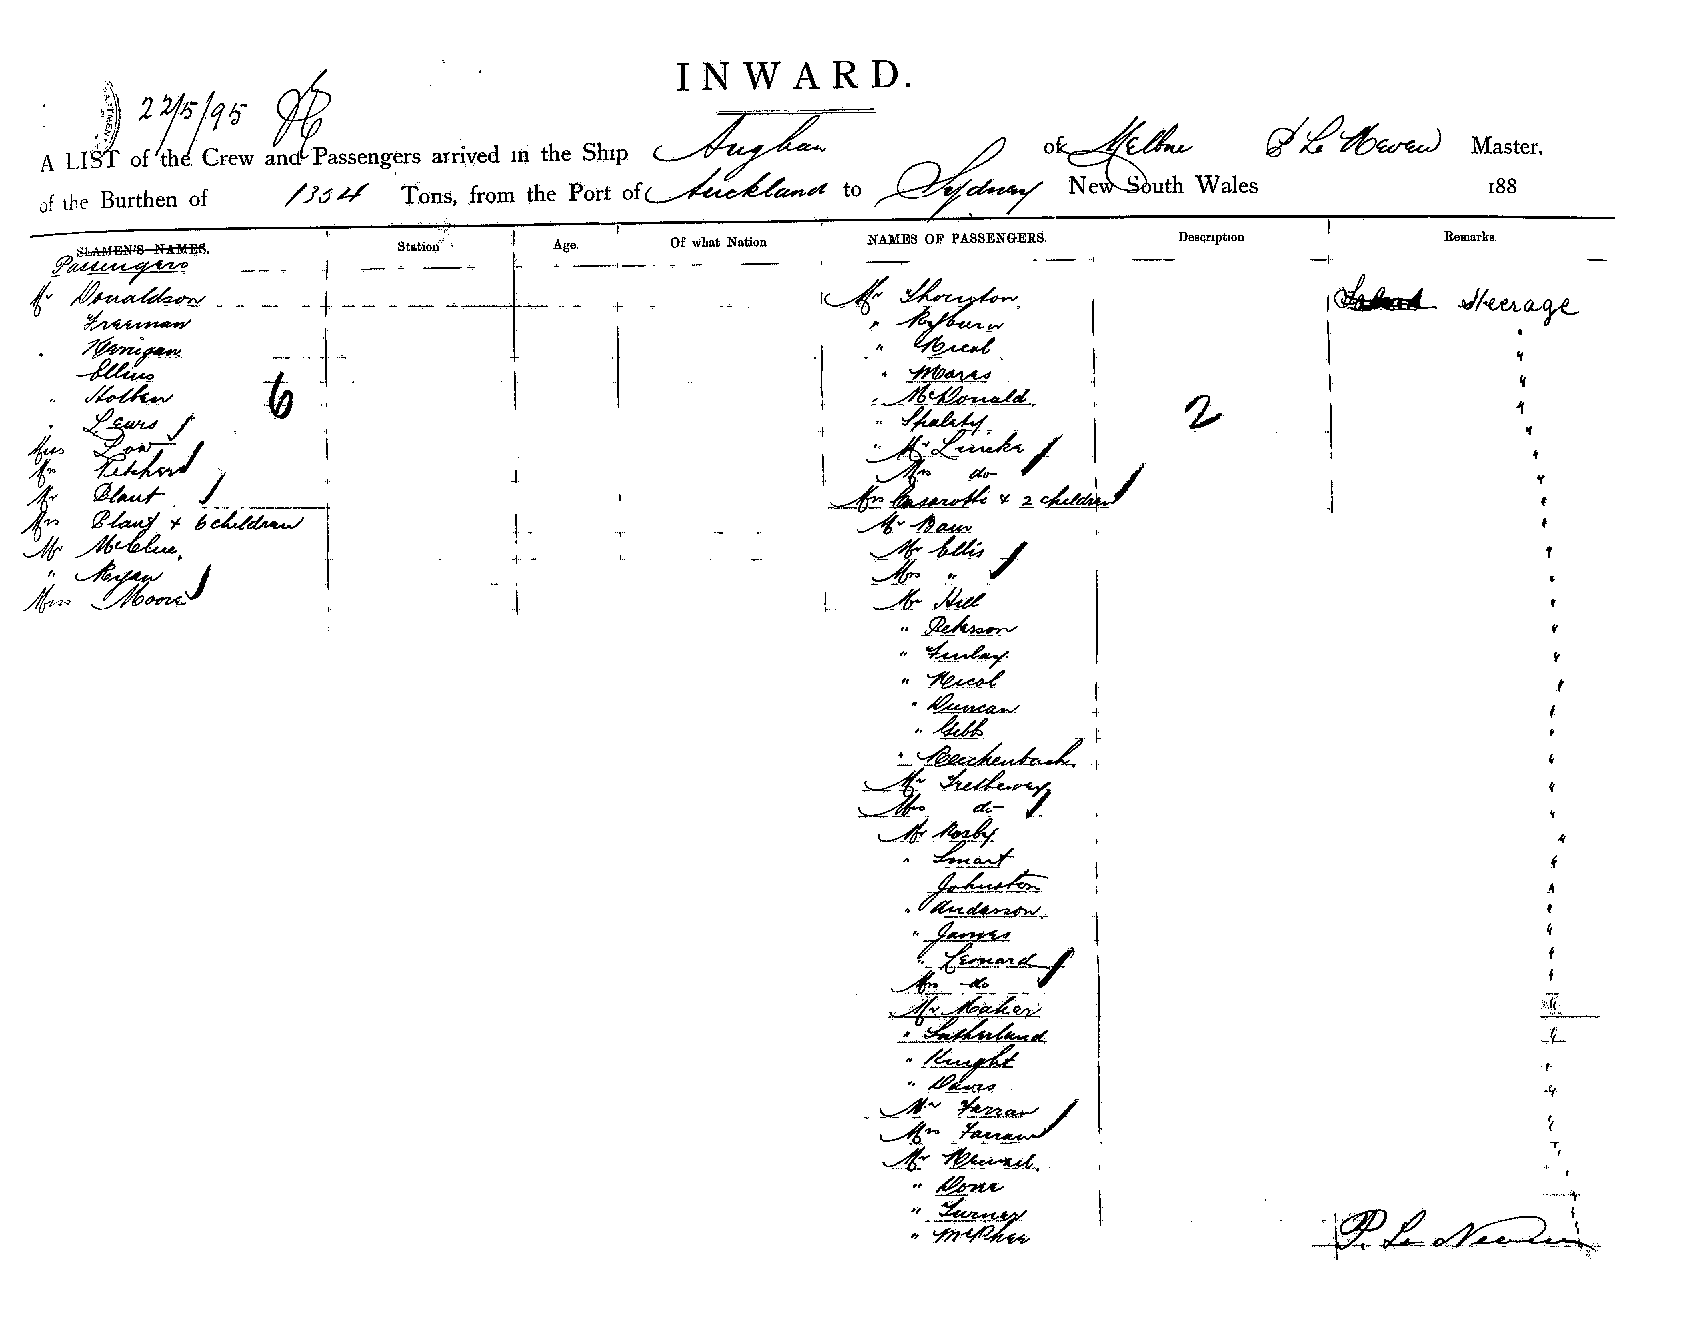 INWARD.
22/5/95
A LIST of the Crew and Passengers arrived in the Ship of Melbne P Le Neven Master,
of the Burthen of 1354 Tons, from the Port of Auckland to Sydney New South Wales 188
SEAMEN'S NAMES. Station Age. Of what Nation NAMES OF PASSENGERS. Description Remarks.
Passengers
Mr Donaldson
Freeman
Kerrigan
Ellius
Holben
Lewis
Miss Low
Mr Pitcher
Mr Plant
Mrs Plant + 6 children
Mr McClue
" Ryan
Miss Moore
6
Mr Thornton Steerage
" Rayburn "
" Nicol "
" Mares "
" McDonald "
" Spalety "
" Mr Lincke "
Mrs do "
Mrs Casarotti + 2 children "
Mr Baur "
Mr Ellis "
Mrs " "
Mr Hill "
" Peterson "
" Finlay "
" Nicol "
" Duncan "
" Gibb "
" Reichenbach "
Mr Tretheway "
Mrs do "
Mr Rosby "
" Smart "
Johnston "
" Anderson "
" James "
" Leonard "
Mrs do "
Mr Maher "
" Sutherland "
" Knight "
" Davis "
Mr Farran "
Mrs Farran "
Mr
" Done
" Turner
" McPhee
2
P. Le Neven